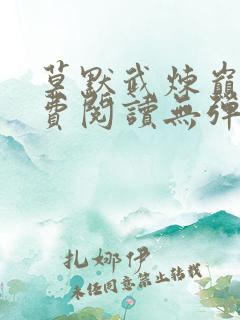 莫默武煉巔
費閱讀無彈
扎娜伊
未經同意禁止轉載